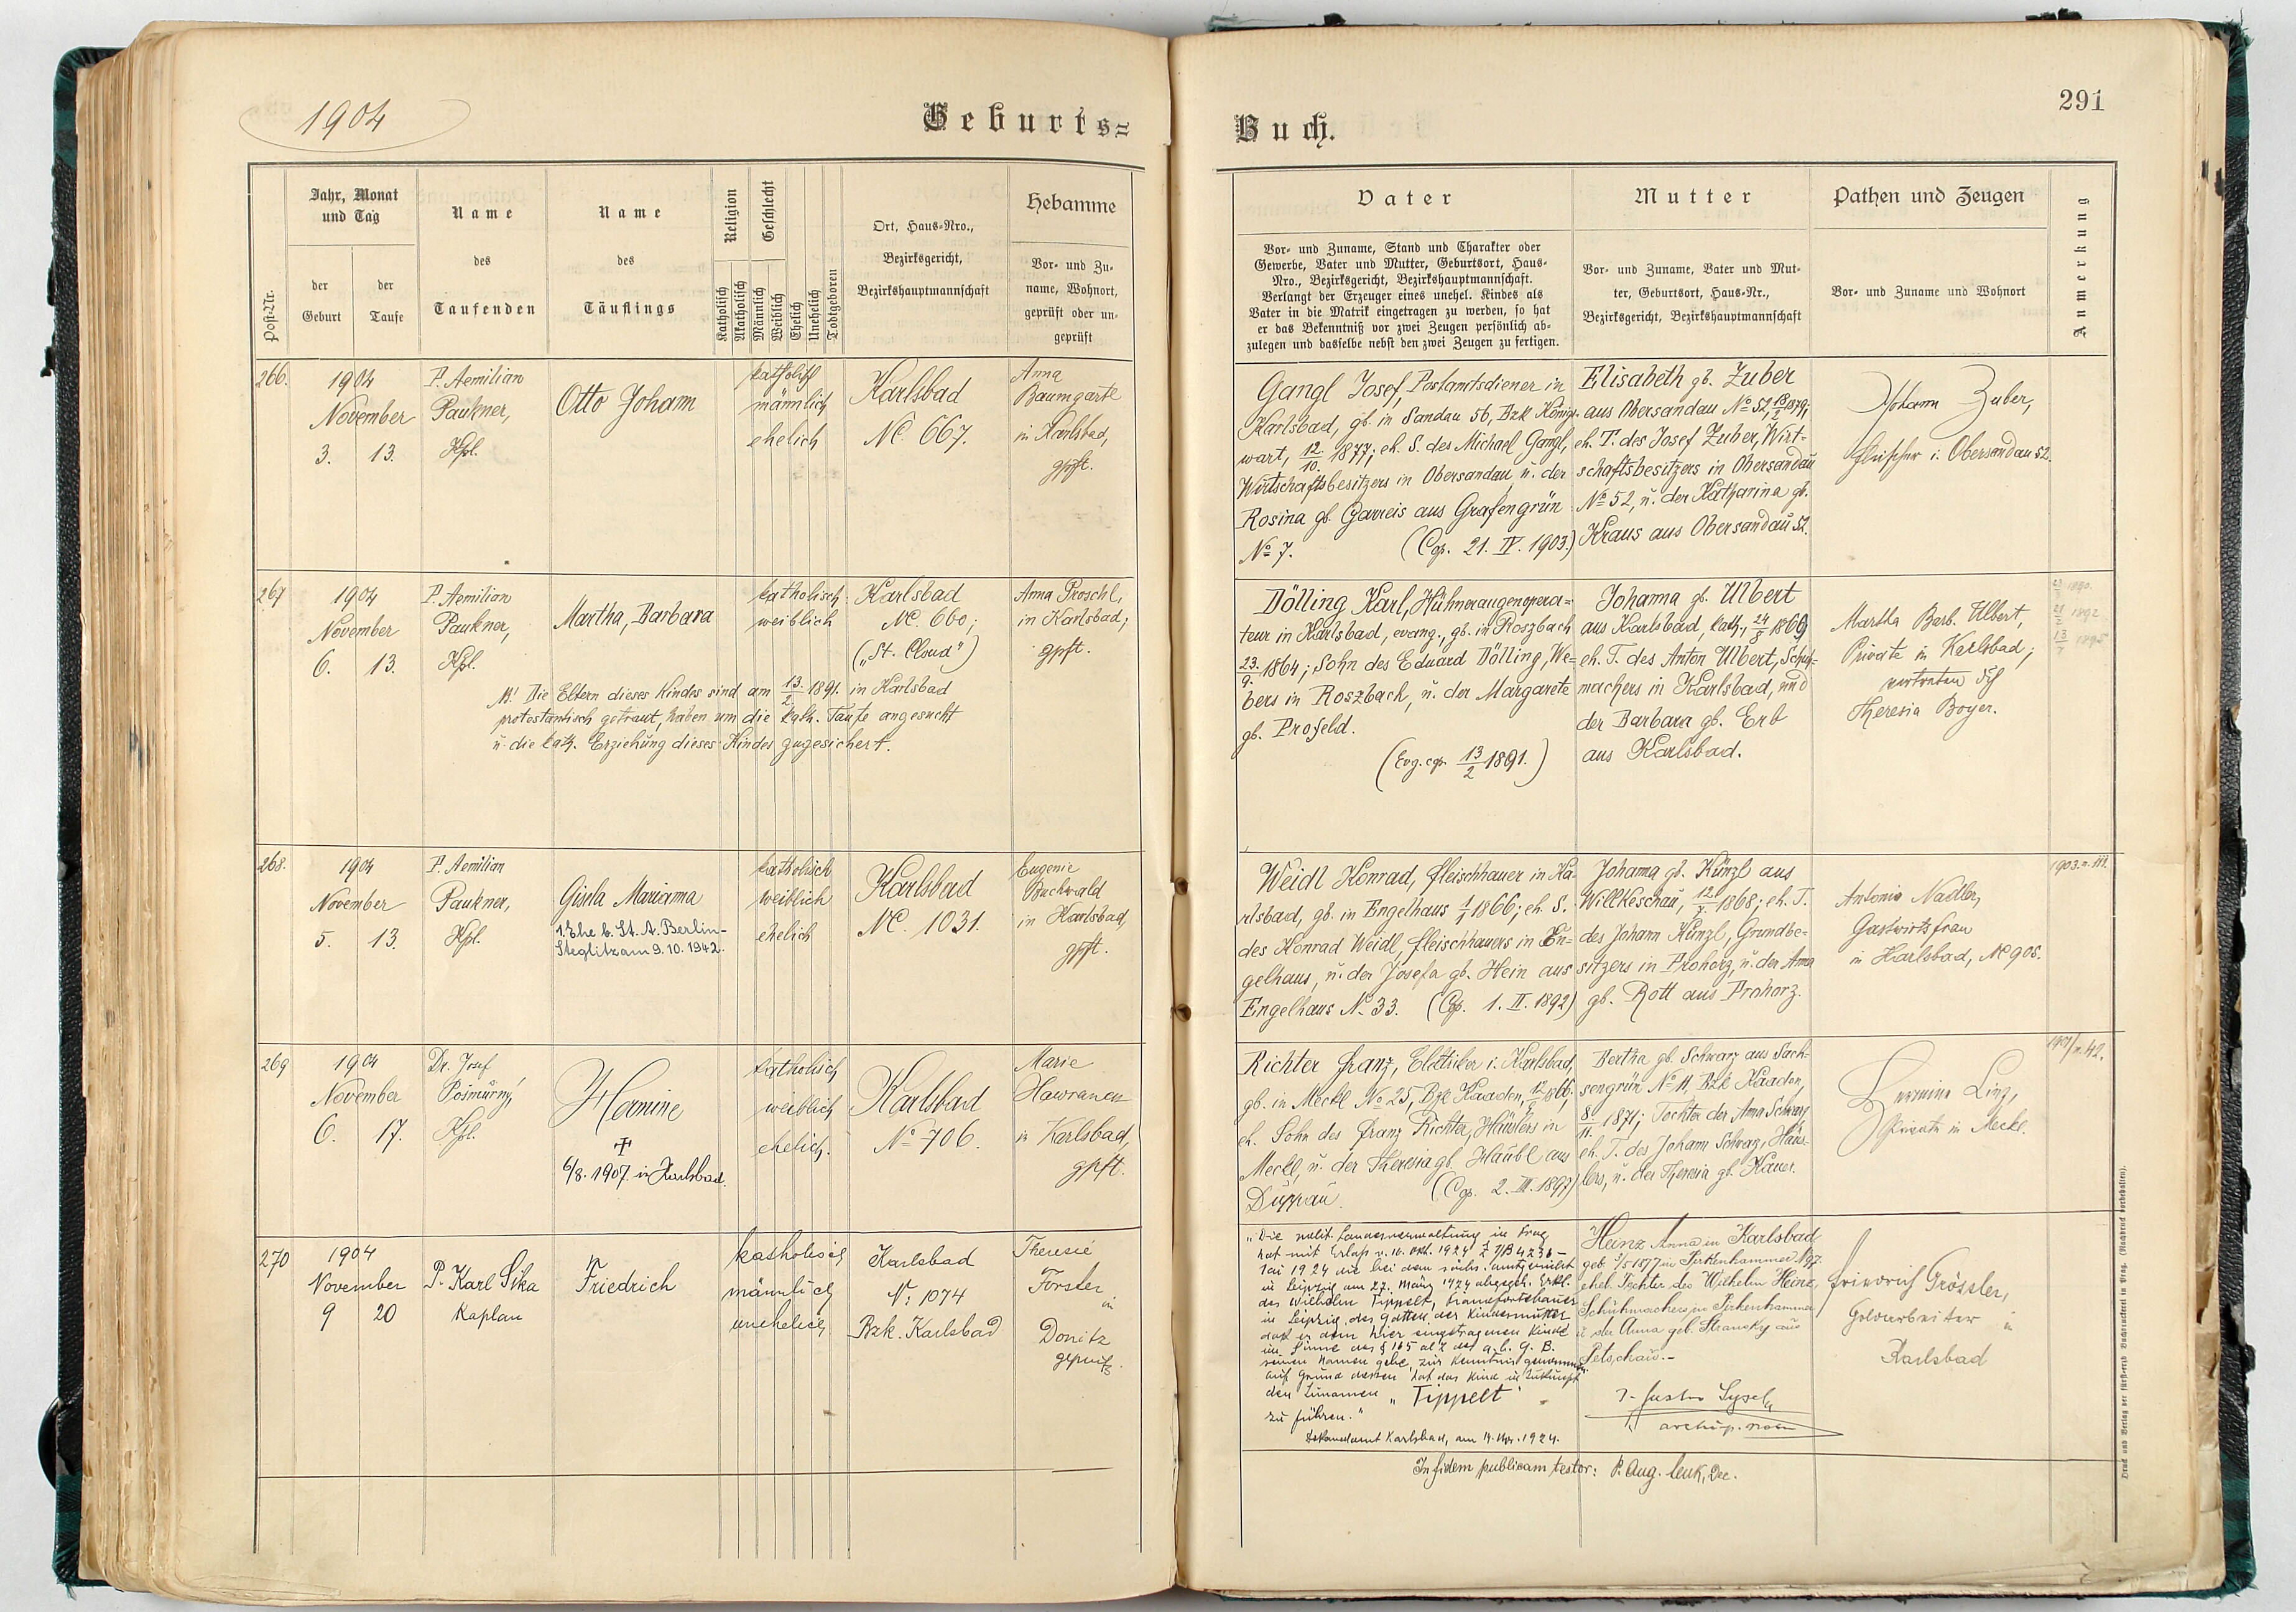 1904
Geburts=
Post-Nr.
Jahr, Monat
und Tag
der
Geburt
der
Taufe
Name
des
Taufenden
Name
des
Täuflings
Religion
Katholisch
Akatholisch
Geschlecht
Männlich
Weiblich
Ehelich
Unehelich
Todtgeboren
Ort, Haus-Nro.,
Bezirksgericht,
Bezirkshauptmannschaft
Hebamme
Vor- und Zu-
name, Wohnort,
geprüft oder un-
geprüft
266.
1904
November
3. 13.
P. Aemilian
Paukner,
Kpl.
Otto Johann
katholisch
männlich
ehelich
Karlsbad
NC. 667.
Anna
Baumgartl
in Karlsbad,
gpft.
267
1904
November
6. 13.
P. Aemilian
Paukner,
Kpl.
Martha, Barbara
katholisch
weiblich
Karlsbad
NC. 660;
("St. Cloud")
Anna Proschl,
in Karlsbad;
gpft.
NB! Die Eltern dieses Kindes sind am 13./2. 1891. in Karlsbad
protestantisch getraut, haben um die kath. Taufe angesucht
u. die kath. Erziehung dieses Kindes zugesichert.
268.
1904
November
5. 13.
P. Aemilian
Paukner,
Kpl.
Gisela Marianna
1. Ehe b. St. A. Berlin-
Steglitz am 9.10.1942.
katholisch
weiblich
ehelich
Karlsbad
NC. 1031.
Eugenie
Buchwald
in Karlsbad,
gpft.
269
1904
November
6. 17.
Dr. Josef
Pošmurný,
Kpl.
Hermine
†
6/8. 1907. in Karlsbad.
katholisch
weiblich
ehelich.
Karlsbad
No 706.
Marie
Hawranek
in Karlsbad,
gpft.
270
1904
November
9 20
P. Karl Sika
Kaplan
Friedrich
katholisch
männlich
unehelich
Karlsbad
No: 1074
Bzk. Karlsbad
Theresie
Forster
in
Donitz
geprüft.
291
Buch.
Vater
Vor- und Zuname, Stand und Charakter oder
Gewerbe, Vater und Mutter, Geburtsort, Haus-
Nro., Bezirksgericht, Bezirkshauptmannschaft.
Verlangt der Erzeuger eines unehel. Kindes als
Vater in die Matrik eingetragen zu werden, so hat
er das Bekenntniß vor zwei Zeugen persönlich ab-
zulegen und dasselbe nebst den zwei Zeugen zu fertigen.
Mutter
Vor- und Zuname, Vater und Mut-
ter, Geburtsort, Haus-Nr.,
Bezirksgericht, Bezirkshauptmannschaft
Pathen und Zeugen
Vor- und Zuname und Wohnort
Anmerkung
Gangl Josef, Postamtsdiener in
Karlsbad, gb. in Sandau 56, Bzk Königs-
wart, 12./10. 1877; eh. S. des Michael Gangl,
Wirtschaftsbesitzers in Obersandau, u. der
Rosina gb. Garreis aus Grafengrün
No 7. (Cop. 21. IV. 1903.)
Elisabeth gb. Zuber
aus Obersandau No 52, 18/2 1879;
eh. T. des Josef Zuber, Wirt-
schaftsbesitzers in Obersandau
No 52, u. der Katharina gb.
Kraus aus Obersandau 52.
Johann Zuber,
Fleischer i. Obersandau 52.
Dölling Karl, Hühneraugenopera-
teur in Karlsbad, evang., gb. in Roszbach
23./9. 1864; Sohn des Eduard Dölling, We-
bers in Roszbach, u. der Margarete
gb. Profeld.
(Evg. cop. 13/2 1891.)
Johanna gb. Ulbert
aus Karlsbad, kath., 24/8 1869
eh. T. des Anton Ulbert, Schuh-
machers in Karlsbad, und
der Barbara gb. Erb
aus Karlsbad.
Martha Barb. Ulbert,
Private in Karlsbad;
vertreten dch
Theresia Boyer.
1890.
1892
1895
Weidl Konrad, Fleischhauer in Ka-
rlsbad, gb. in Engelhaus 1/1 1866; eh. S.
des Konrad Weidl, Fleischhauers in En-
gelhaus, u. der Josefa gb. Hein aus
Engelhaus No 33. (Cop. 1. II. 1892)
Johanna gb. Künzl aus
Willkeschau, 1868; eh. T.
des Johann Künzl, Grundbe-
sitzers in Prohorz, u. der Anna
gb. Rott aus Prohorz.
Antonia Nadler,
Gastwirtsfrau
in Karlsbad, NC 905.
Richter Franz, Elektriker i. Karlsbad,
gb. in Meckl No 25, Bzk Kaaden, 1866;
eh. Sohn des Franz Richter, Häuslers in
Meckl, u. der Theresia gb. Häubl aus
Duppau. (Cop. 2. III. 1897)
Bertha gb. Schwarz aus Sach-
sengrün No 11, Bzk Kaaden,
8./11. 1871; Tochter der Anna Schwarz
eh. T. des Johann Schwarz, Häus-
lers, u. der Theresia gb. Kauer.
Hermine Ling,
Private in Meckl.
"Die polit. Landesverwaltung in Prag
hat mit Erlaß v. 16. Okt. 1924
1924 die bei dem sächs. Amtsgericht
in Leipzig am 27. März 1924 abgegeb. Erkl.
des Wilhelm Tippelt,
in Leipzig, des Gatten der Kindesmutter
daß er dem hier eingetragenen Kinde
im Sinne des § 165 al 2 des a. b. G. B.
seinen Namen gebe, zur Kenntnis genommen.
Auf Grund dessen hat das Kind in Zukunft
den Zunamen "Tippelt"
zu führen."
Dekanalamt Karlsbad, am 14. Nov. 1924.
Heinz Anna in Karlsbad
geb 5/5 1877 in Pirkenhammer N 97
ehel. Tochter des Wilhelm Heinz,
Schuhmachers in Pirkenhammer
u der Anna geb. Stransky aus
Petschau.-
Friedrich Grössler,
Goldarbeiter in
Karlsbad
In fidem publicam testor: P. Aug. Dec.
Druck und Verlag der fürst-erzb. Buchdruckerei in Prag. (Nachdruck vorbehalten).